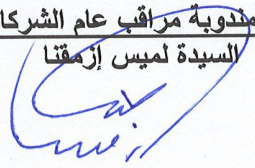 مندوبة مراقب عام الشركا
السيدة لميس إزمقنا